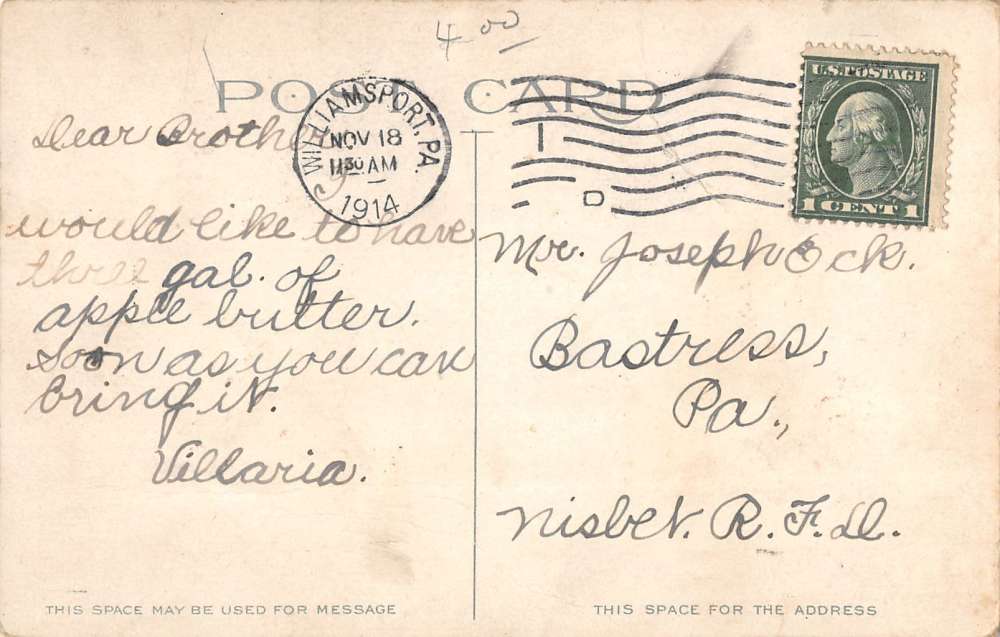 4.00
POST CARD
WILLIAMSPORT, PA.
NOV 18
11 30 AM
1914
1
D
U.S. POSTAGE
1 CENT 1
Dear Brother
would like to have
three gal. of
apple butter.
soon as you can
bring it.
Villaria.
Mr. Joseph Eck.
Bastress,
Pa.,
Nisbet. R. F. D.
THIS SPACE MAY BE USED FOR MESSAGE
THIS SPACE FOR THE ADDRESS